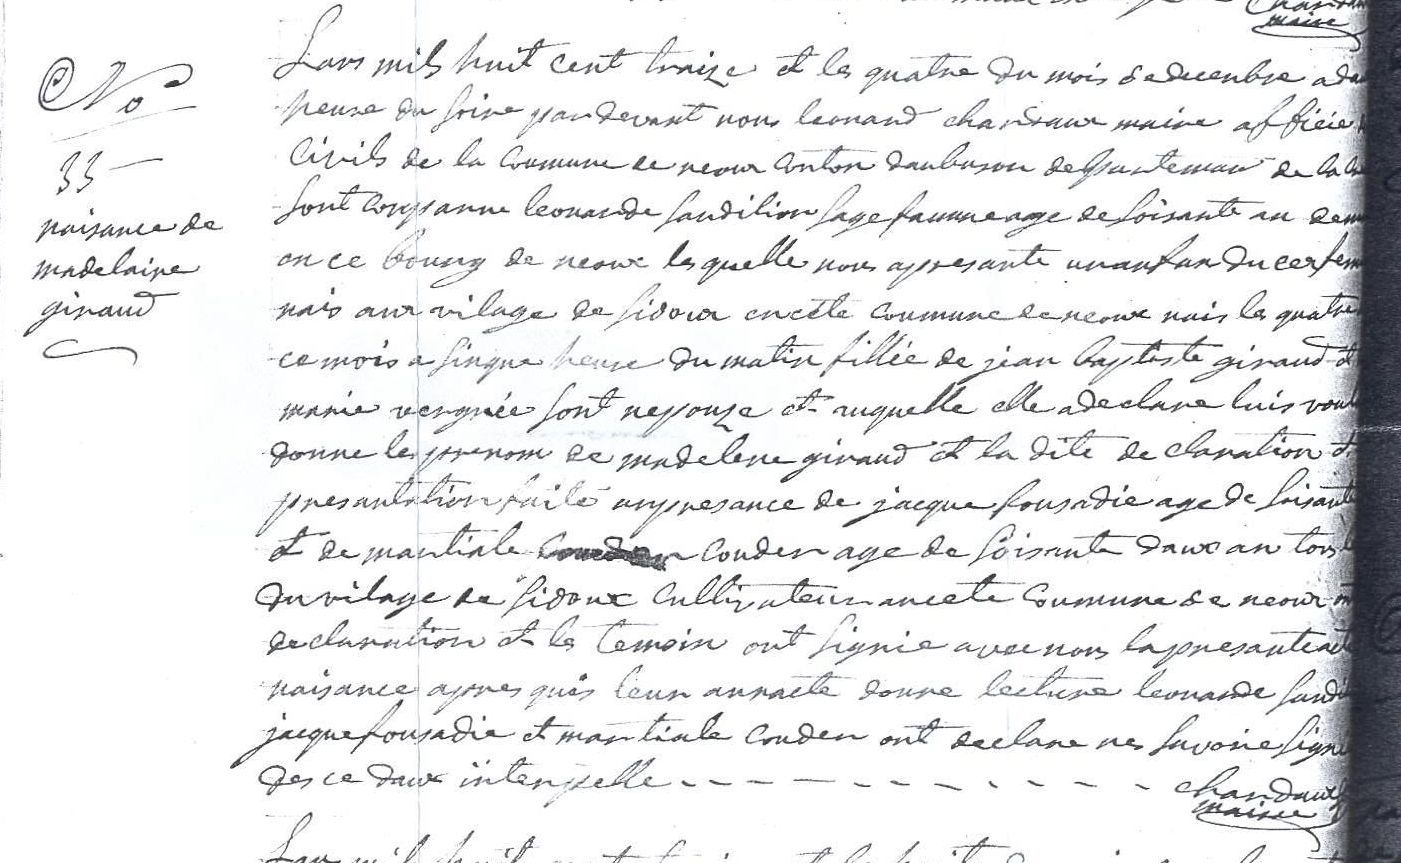 maire
No
33
naisance de
madelaine
giraud
Lans mils huit cent traize et les quatre du mois de decenbre a
heure du soire pardevant nous leonard chandaux maire afficié
Civils de la Coumune de neoux conton daubuson departeman de la
sont conpanne leonarde sandilion sage faumme age de soisante an
en ce bourg de neoux lesquelle nous apresante unanfan du cexfem
nais aux vilage de sidoux encete coumune de neoux nais les quatre
ce mois a sinque heure du matin fillée de jean baptiste giraud et
marie vergnée sont nepouze et auquelle elle a declare luis
donne les prenom de madelene giraud et la dite declaration et
presantation faite anpresance de jacque fousadie age de soisante
et de martiale couder age de soisante daux an tous
du vilage de sidoux Cultivateur ancete coumune de neoux
declaration et les temoin ont signie avec nous la presante
naisance apres quis leur annaete donne lecture leonarde
jacque fousadie et martiale couder ont declare nes savoire signé
des ce daux interpelle
chandaux
maire